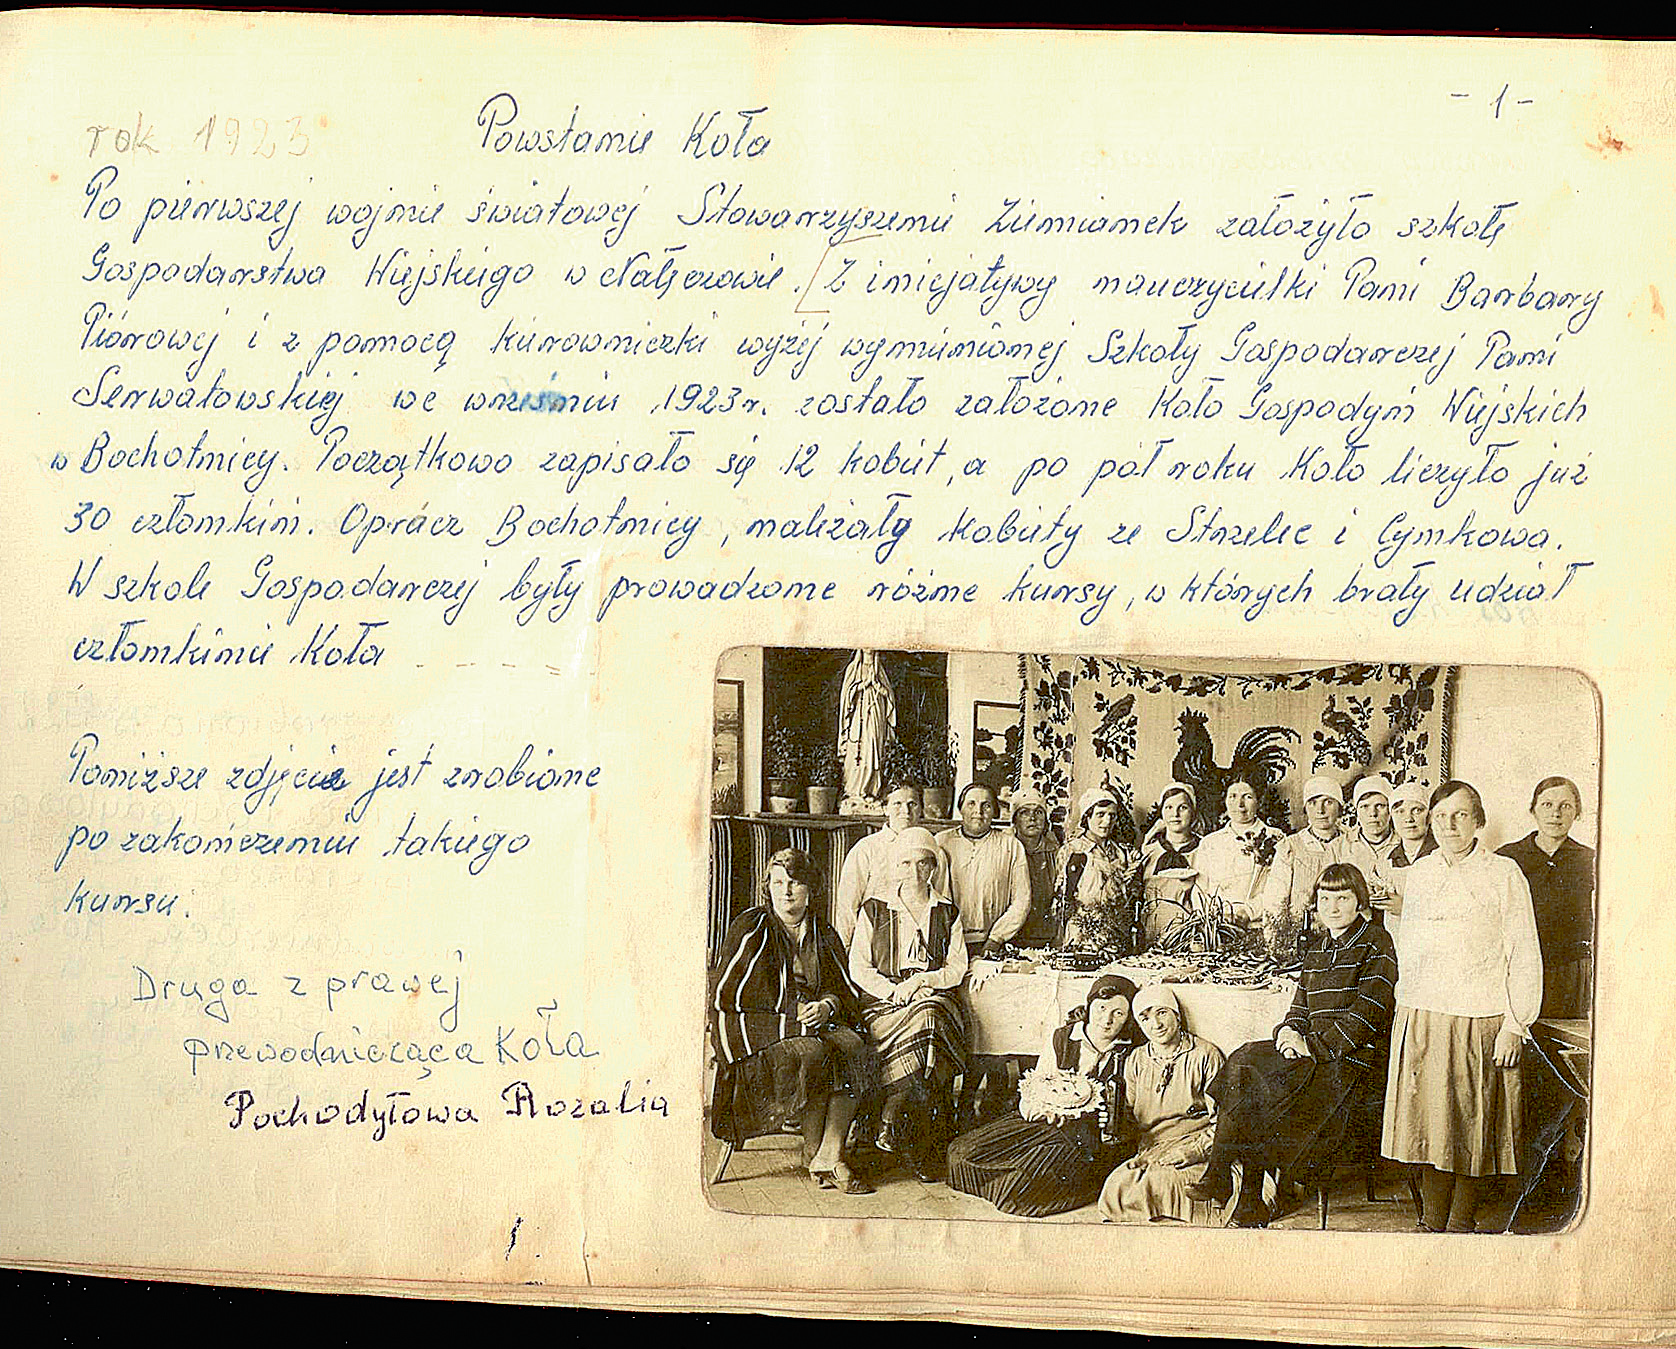 - 1 -
rok 1923 Powstanie Koła
Po pierwszej wojnie światowej Stowarzyszenie Ziemianek założyło szkołę
Gospodarstwa Wiejskiego w Nałęczowie. [Z inicjatywy nauczycielki Pani Barbary
Piórowej i z pomocą kierowniczki wyżej wymienionej Szkoły Gospodarczej Pani
Serwatowskiej we wrześniu 1923r. zostało założone Koło Gospodyń Wiejskich
w Bochotnicy. Początkowo zapisało się 12 kobiet, a po pół roku Koło liczyło już
30 członkiń. Oprócz Bochotnicy, należały kobiety ze Strzelec i Cynkowa.
W szkole Gospodarczej były prowadzone różne kursy, w których brały udział
członkinie Koła
Poniższe zdjęcie jest zrobione
po zakończeniu takiego
kursu.
Druga z prawej
przewodnicząca Koła
Pochodyłowa Rozalia
1.